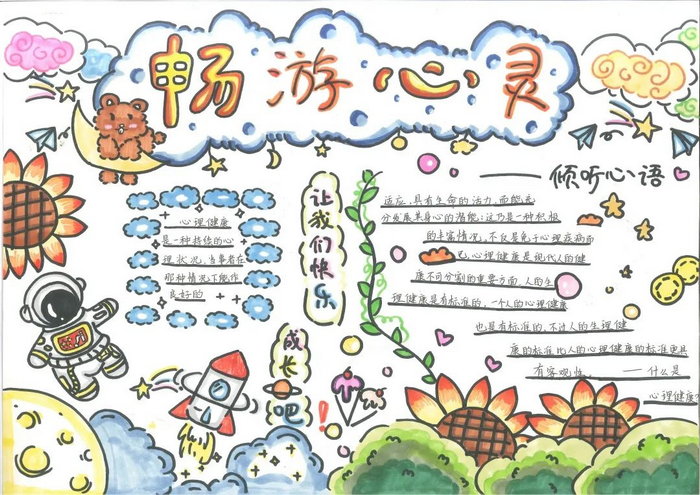 畅游心灵
——倾听心语
心理健康
是一种持续的心
理状况，当事者在
那种情况下能作
良好的
让我们快乐
成长吧！
适应，具有生命的活力，而能充
分发展其身心的潜能；这乃是一种积极
的丰富情况，不仅是免于心理疾病而
已，心理健康是现代人的健
康不可分割的重要方面，人的生
理健康是有标准的，一个人的心理健康
也是有标准的，不过人的生理健
康的标准比人的心理健康的标准更具
有客观性。 ——什么是
心理健康